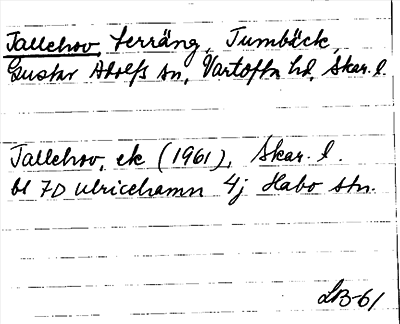 Tallehov, terräng, Tumbäck,
Gustav Adolfs sn, Vartofta hd, Skar. l.
Tallehov, ek (1961), Skar. l.
bl 7D Ulricehamn 4j Habo stn.
LB-61